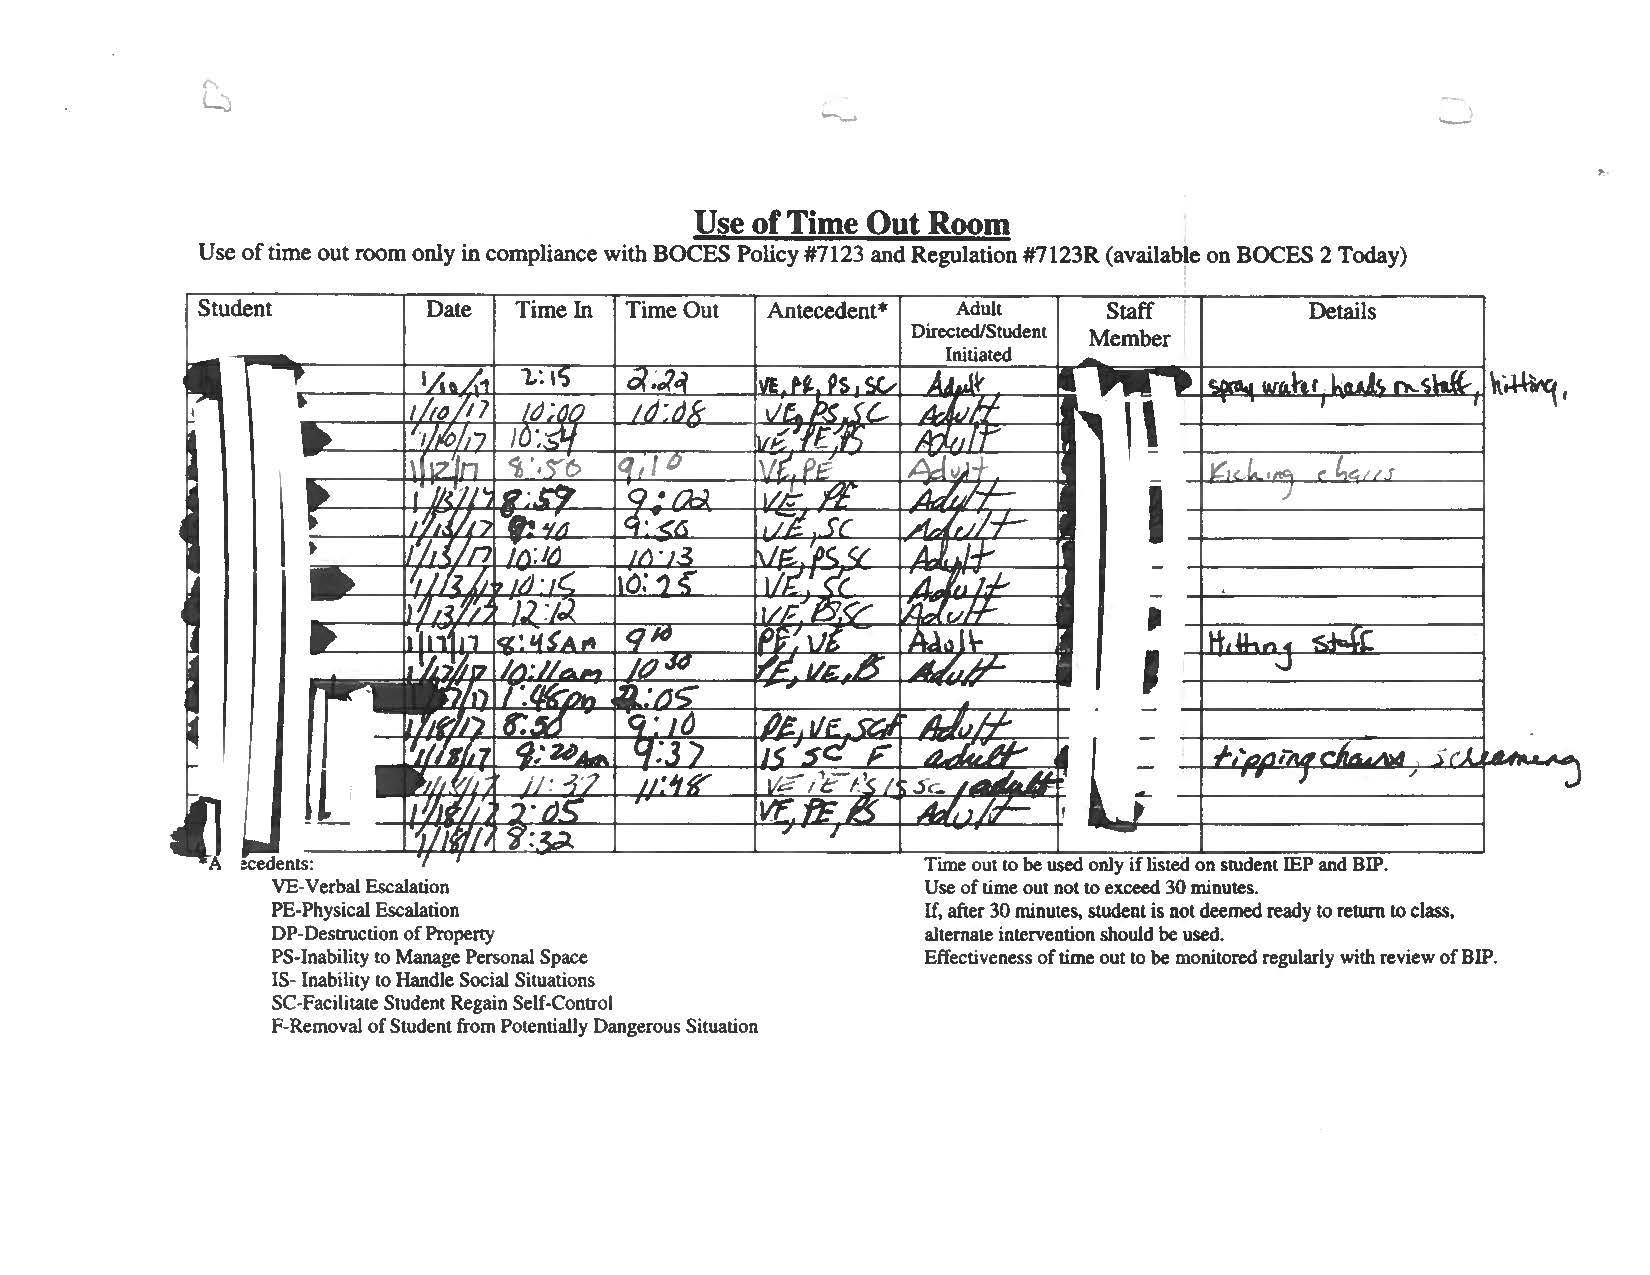 Use of Time Out Room
Use of time out room only in compliance with BOCES Policy #7123 and Regulation #7123R (available on BOCES 2 Today)
Student Date Time In Time Out Antecedent* Adult Directed/Student Initiated Staff Member Details
1/10/17 2:15 2:22 VE, PE, PS, SC Adult spray water, hands on staff, hitting,
1/10/17 10:00 10:08 VE, PS, SC Adult
1/10/17 10:54 VE, PE, PS Adult
1/12/17 8:50 9:10 VE, PE Adult Kicking chairs
1/13/17 8:59 9:02 VE, PE Adult
1/13/17 9:40 9:50 VE, SC Adult
1/13/17 10:10 10:13 VE, PS, SC Adult
1/13/17 10:15 10:25 VE, SC Adult
1/13/17 12:12 VE, PS, SC Adult
1/17/17 8:45 AM 9 10 PE, VE Adult Hitting staff
1/17/17 10:11am 10 30 PE, VE, PS Adult
7/17 1:46pm 2:05
1/18/17 8:50 9:10 PE, VE, Adult
1/18/17 9:20 Am 9:37 IS SC F adult tipping chairs, screaming
1/18/17 11:37 11:48 VE PE PS IS SC adult
1/18/17 2:05 VE, PE, PS Adult
1/18/17 8:32
*A ecedents:
VE-Verbal Escalation
PE-Physical Escalation
DP-Destruction of Property
PS-Inability to Manage Personal Space
IS- Inability to Handle Social Situations
SC-Facilitate Student Regain Self-Control
F-Removal of Student from Potentially Dangerous Situation
Time out to be used only if listed on student IEP and BIP.
Use of time out not to exceed 30 minutes.
If, after 30 minutes, student is not deemed ready to return to class,
alternate intervention should be used.
Effectiveness of time out to be monitored regularly with review of BIP.